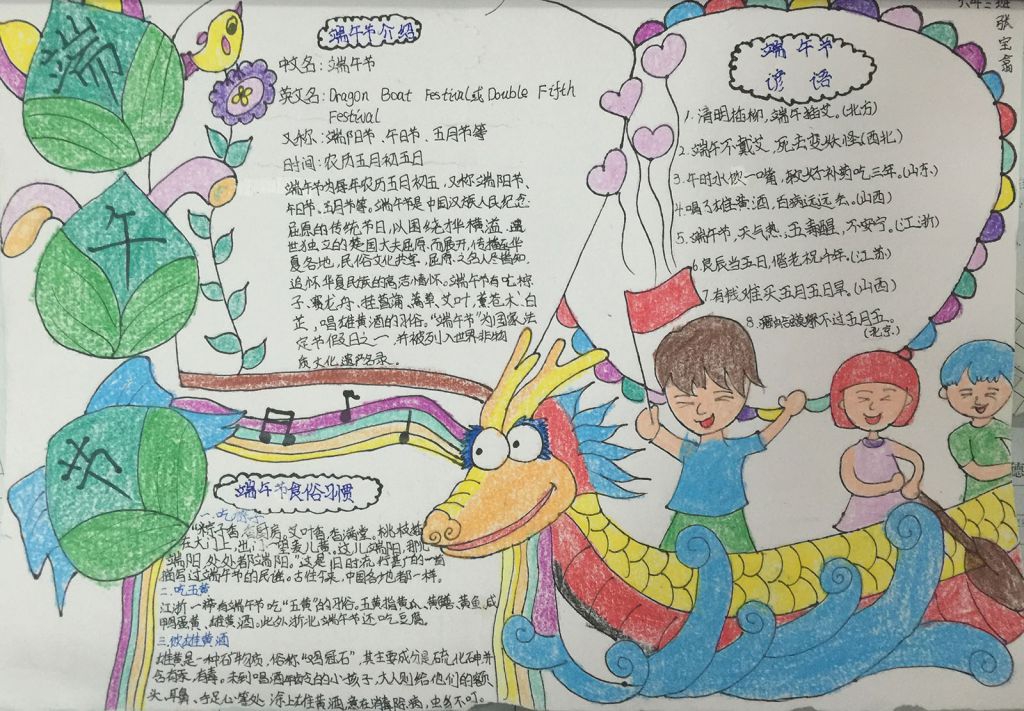 端
午
岁
六年三班
张宝
端午节介绍
中文名：端午节
英文名：Dragon Boat Festival或Double Fifth
Festival
又称：端阳节、午日节、五月节等
时间：农历五月初五日
端午节为每年农历五月初五，又称端阳节、
午日节、五月节等。端午节是中国汉族人民纪念
屈原的传统节日，以围绕才华横溢、遗
世独立的楚国大夫屈原而展开，传播至华
夏各地，民俗文化共享，屈原之名人尽皆知，
追怀华夏民族的高洁情怀。端午节有吃粽
子，赛龙舟、挂菖蒲、蒿草、艾叶，薰苍术、白
芷，喝雄黄酒的习俗。“端午节”为国家法
定节假日之一，并被列入世界非物
质文化遗产名录。
端午节
谚语
1.清明插柳，端午插艾。(北方)
2.端午不戴艾，死去变妖怪(西北)
3.午时水饮一嘴，较好补药吃三年。(山东)
4.喝了雄黄酒，百病远远丢。(山西)
5.端午节，天气热，五毒醒，不安宁。(江浙)
6.良辰当五日，偕老祝千年。(江苏)
7.有钱难买五月五日旱。(山西)
8.不过五月五。
(北京)
端午节食俗习惯
一.吃粽
“粽子香，香厨房。艾叶香，香满堂。桃枝插
在大门上，出门一望麦儿黄。这儿端阳，那儿
端阳，处处都端阳。”这是旧时流行甚广的一首
描写过端午节的民谣。古往今来，中国各地都一样。
二.吃五黄
江浙一带有端午节吃“五黄”的习俗。五黄指黄瓜、黄鳝、黄鱼、咸
鸭蛋黄、雄黄酒。此外浙北端午节还吃豆腐。
三.饮雄黄酒
雄黄是一种矿物质，俗称“鸡冠石”，其主要成分是硫化砷并
含有汞，有毒。未到喝酒年龄的小孩子，大人则给他们的额
头、耳鼻、手足心等处涂上雄黄酒，意在消毒防病，虫豸不叮。